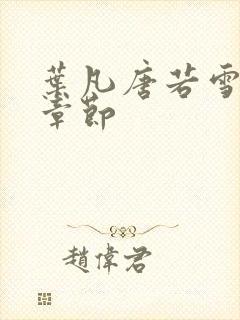 葉凡唐若雪
章節
趙偉君